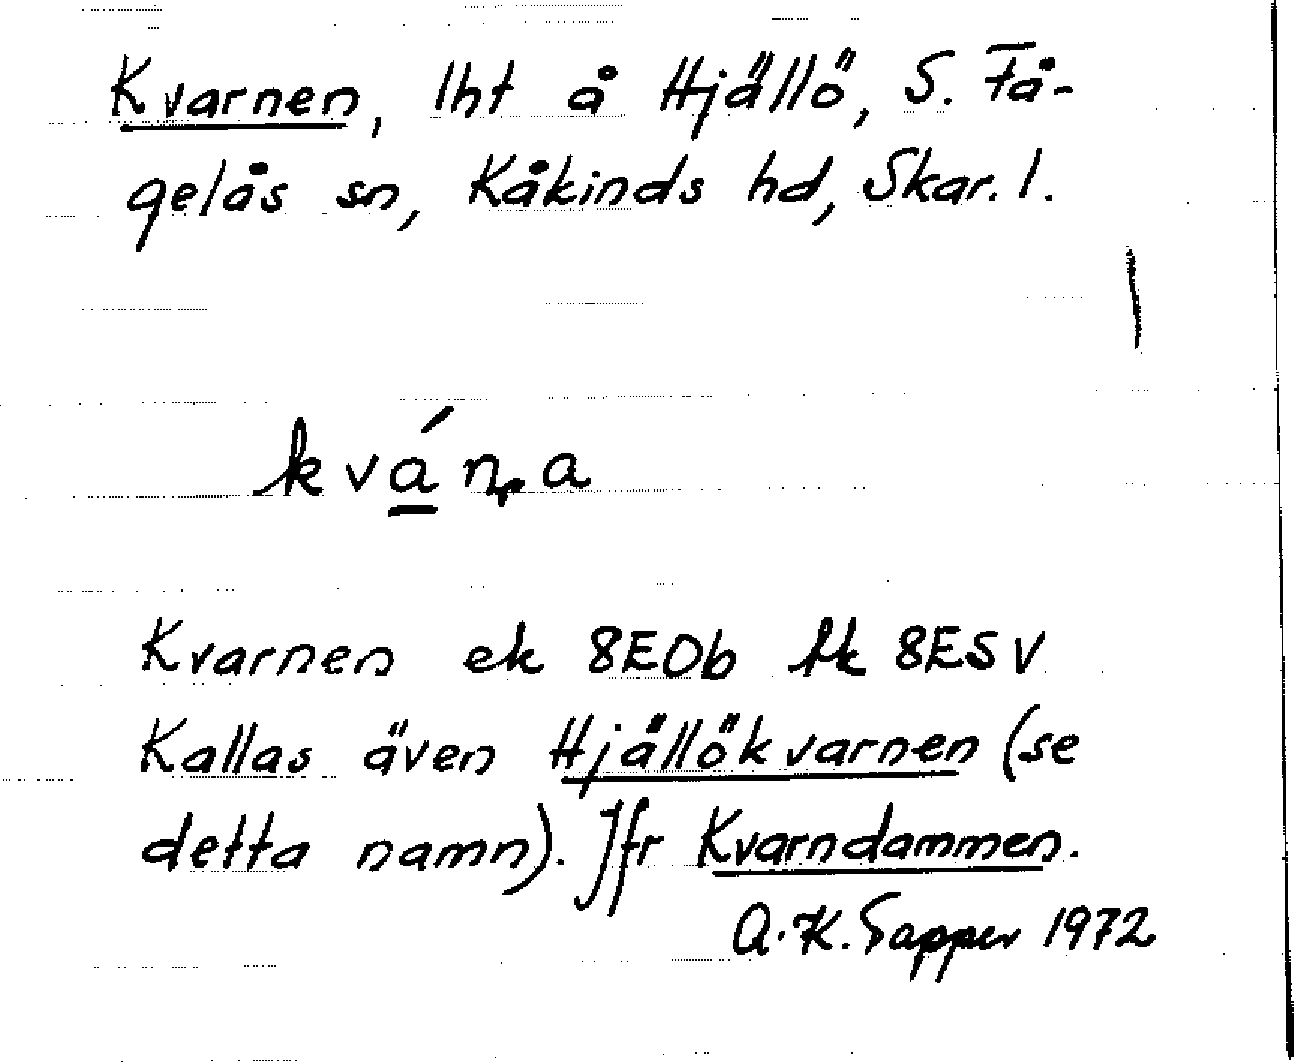 Kvarnen, lht å Hjällö, S. Få-
gelås sn, Kåkinds hd, Skar. l.
kvá̲ṇa
Kvarnen ek 8E0b fk 8E5v
Kallas även Hjällökvarnen (se
detta namn). Jfr Kvarndammen.
A.K. Sapper 1972